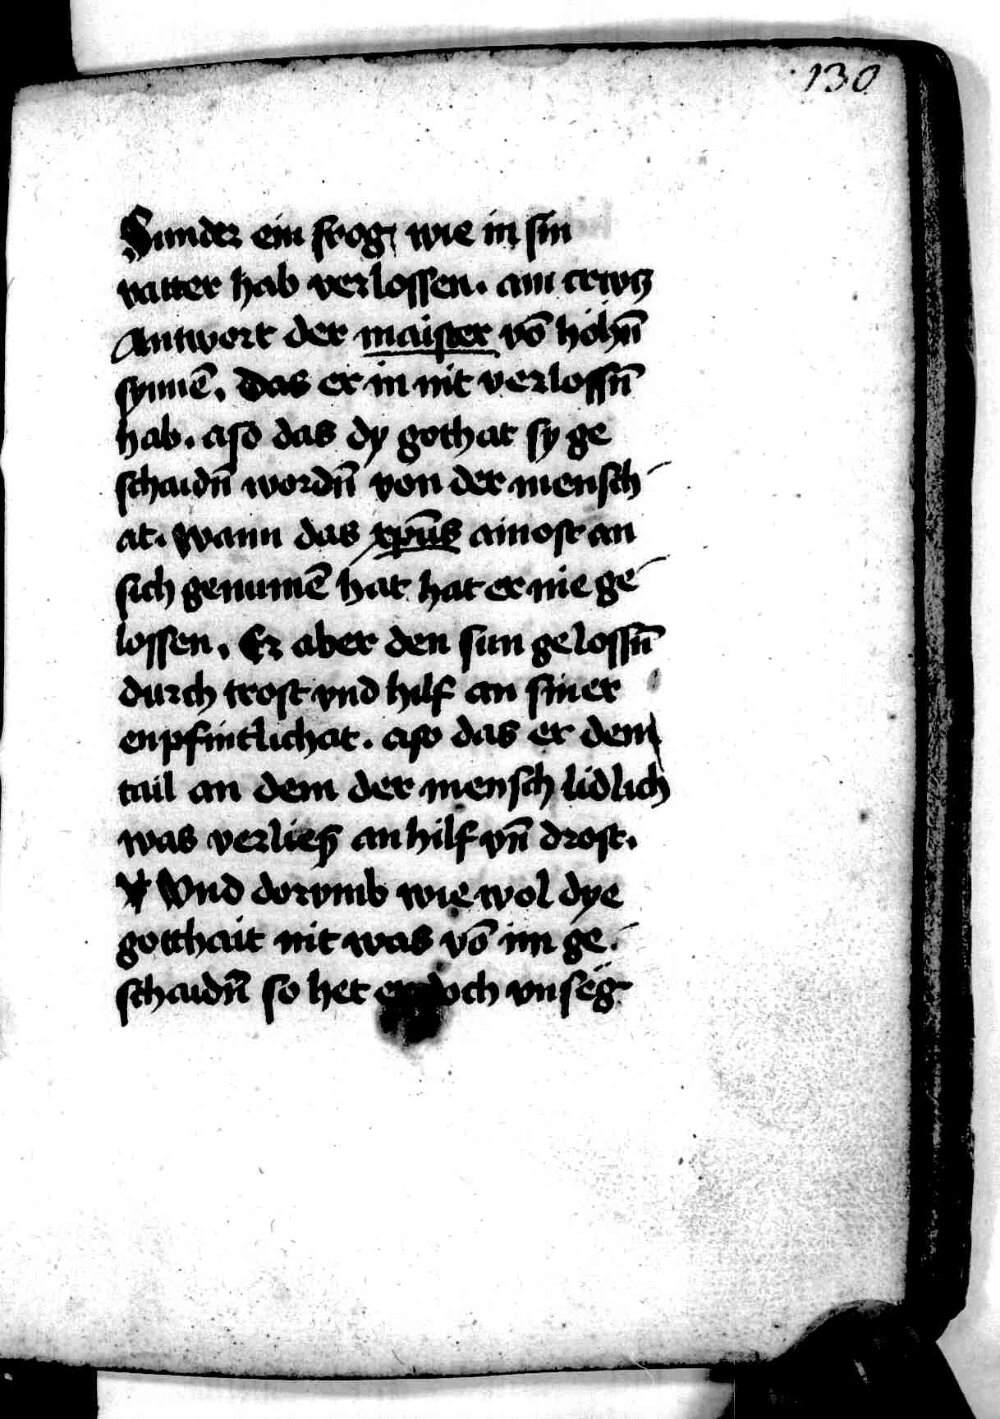 130
Sunder ein frog wie in sin
vatter hab verlossen. am crewtz
Antwort der maister võ hohñ
synnē. Das er in nit verlossñ
hab. also das dy gothat sy ge
schaidñ wordñ von der mensch
at. wann das xp̄us ainost an
sich genumē hat hat er nie ge
lossen. Er aber den sun gelossñ
durch trost vnd hilf an siner
enpfintlichat. also das er dem
tail an dem der mensch lidlich
was verließ an hilf vñ drost.
Vnd dorvmb wie wol dye
gotthait nit was võ im ge
schaidñ so het er doch vnseg